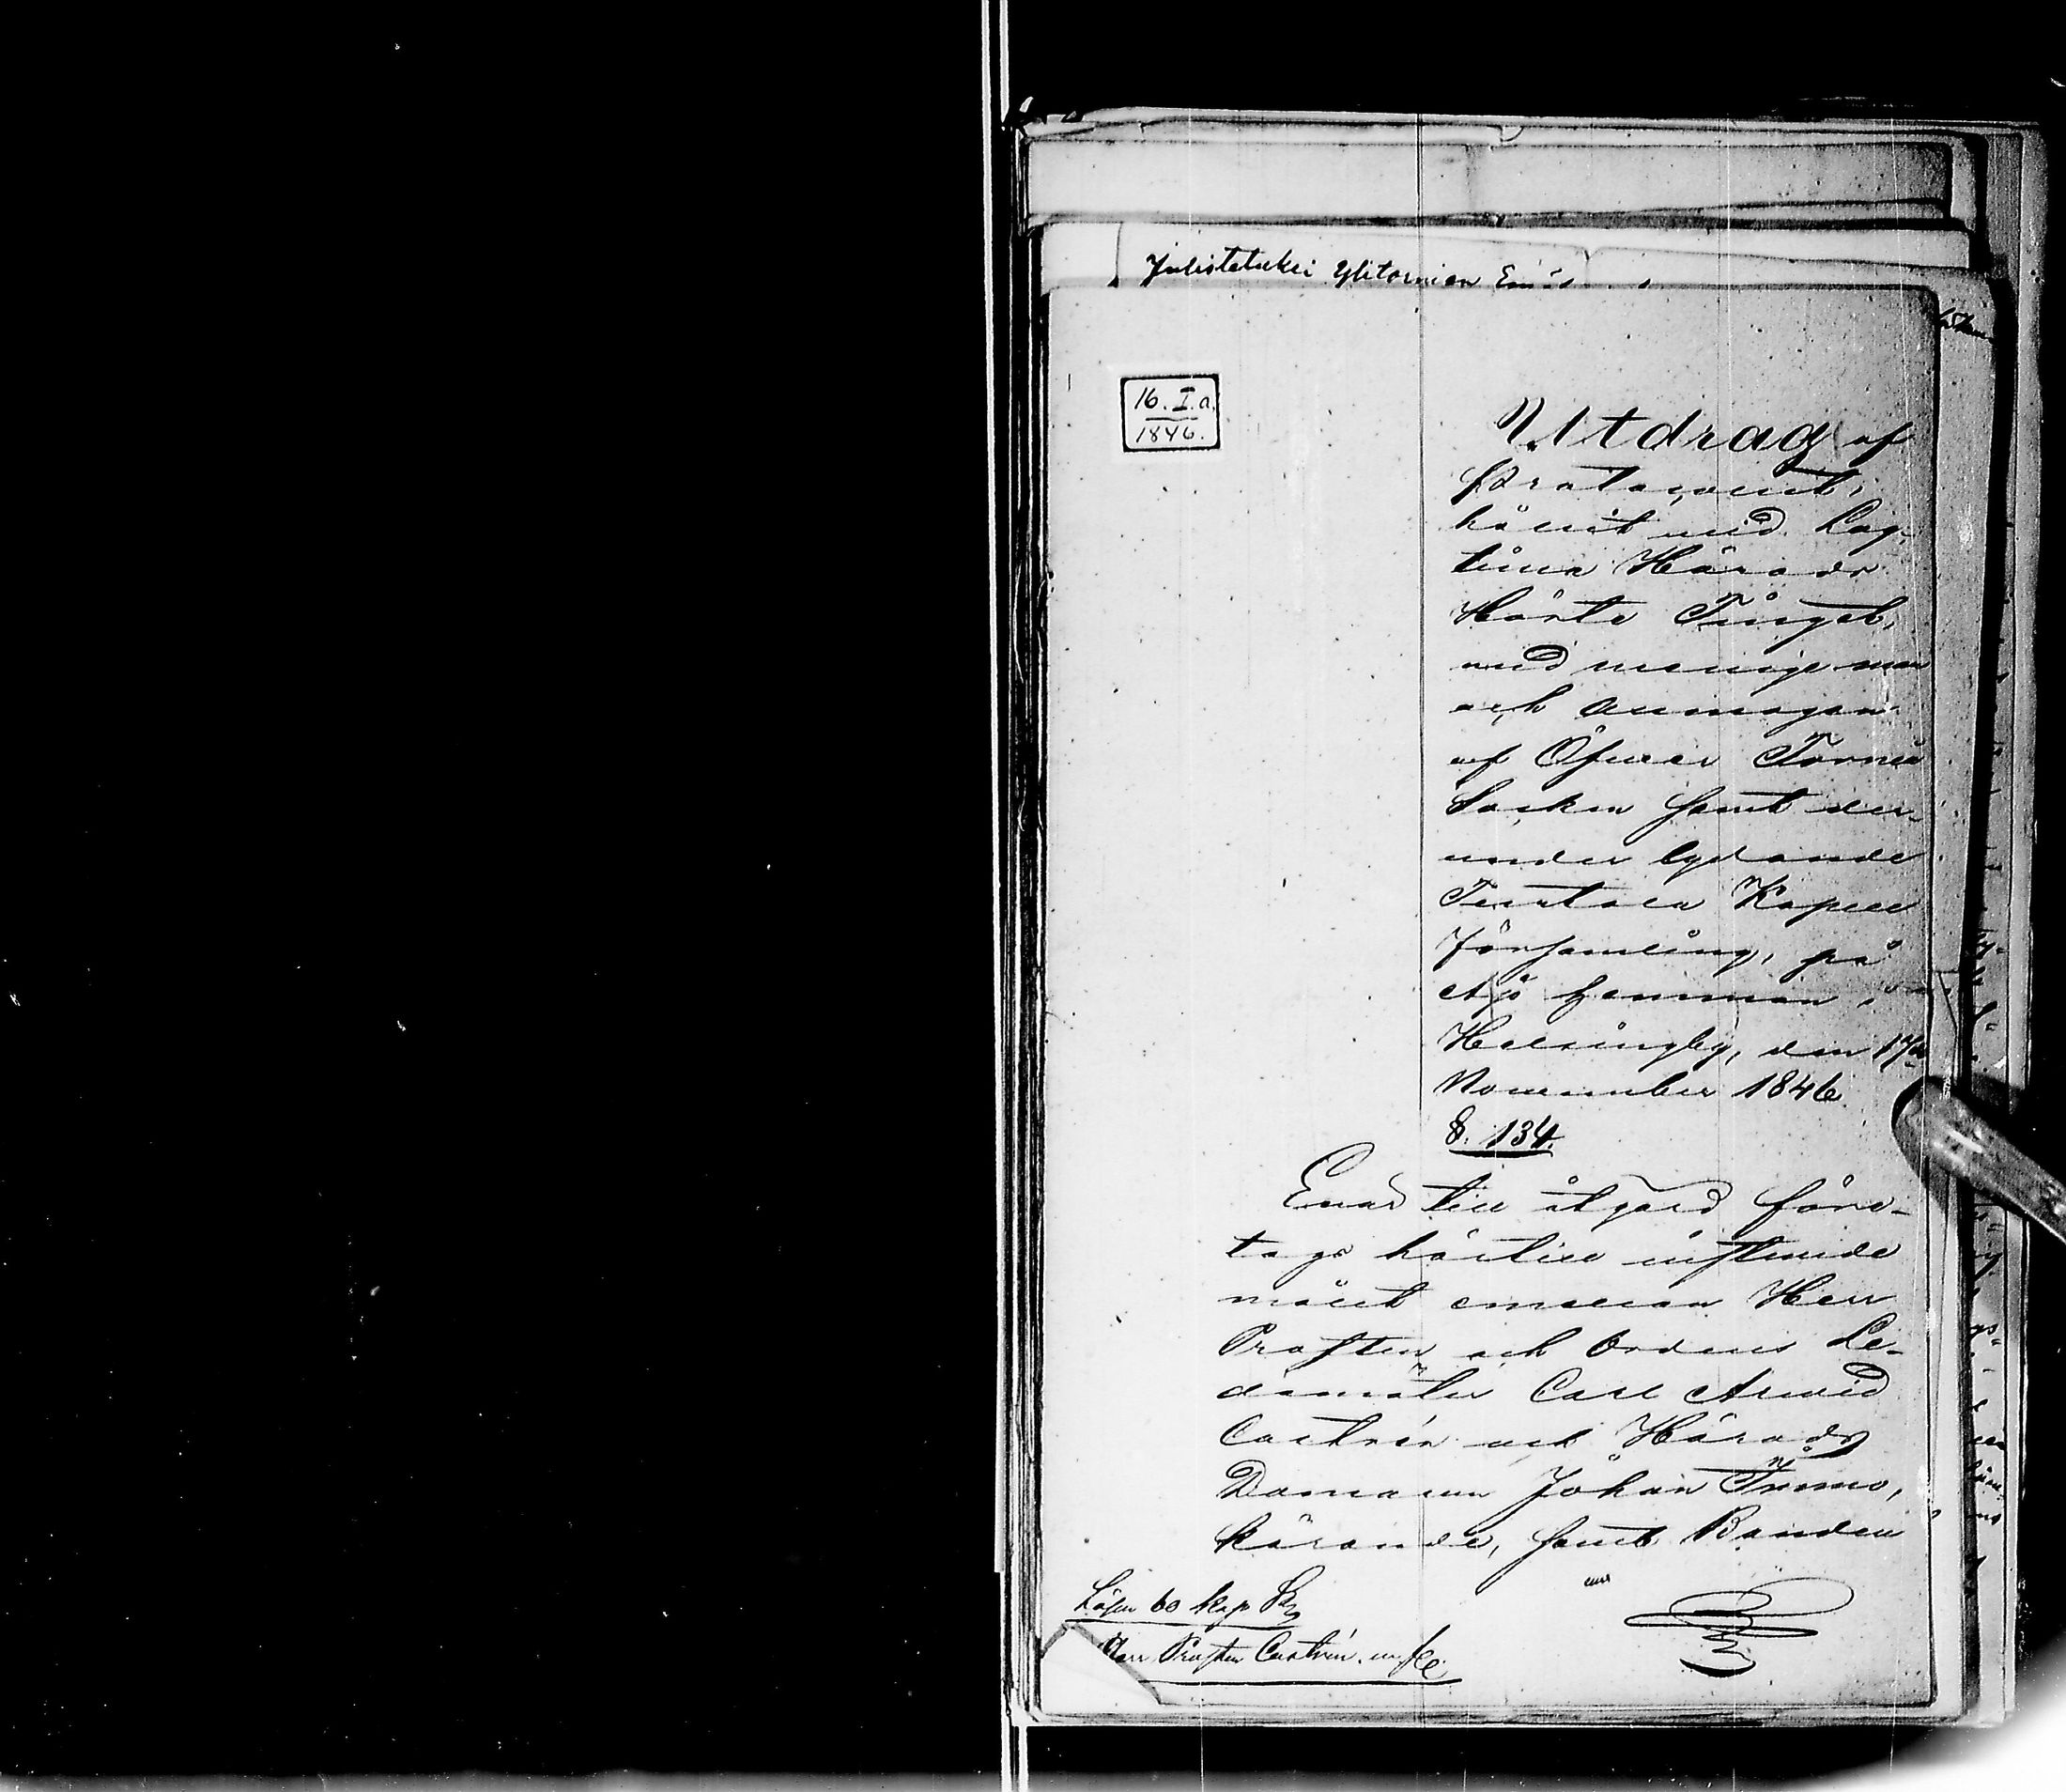 Julistetuksi Ylitornion
16. I. a.
1846.
Utdrag af
Protocollet,
hållit vid Lag-
tima Härads
Höste Tinget,
med menige man
och Allmogen
af Öfver Torneå
Socken samt der-
under lydande
Turtola Kapell
Församling, på
Ajo hemman i
Helsingby, den 17de
November 1846.
§. 134.
Emot till åtgärd före-
togs härtill instämde
målet emellan Herr
Prosten och Ordens Le-
damoten Carl Arvid
Castrén och Härads
Domaren Johan Tuomo,
kärande, samt Bonden
Lösen 60 kop Sr
Herr Prosten Castrén